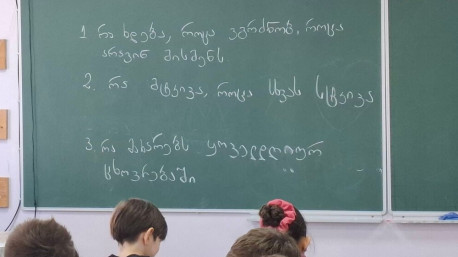 1 რა ხდება, როცა ვგრძნობ, როცა
არავინ მისმენს
2. რა მტკივა, როცა სხვას სტკივა
3. რა მახარებს ყოველდღიურ
ცხოვრებაში